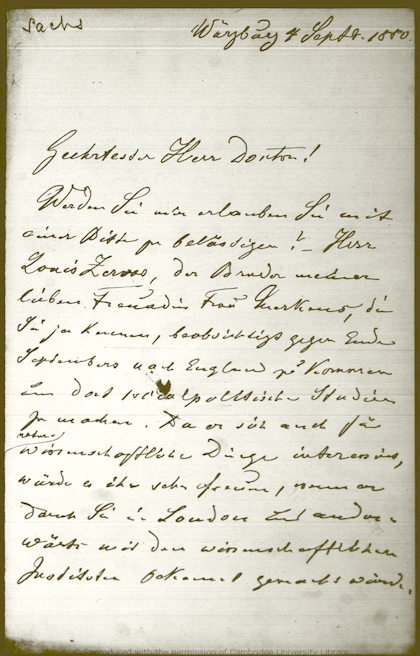 Sachs
Würzburg 4 Septb. 1880.
Geehrtester Herr Doctor!
Werden Sie mir erlauben Sie mit
einer Bitte zu belästigen? – Herr
Louis, der Bruder meiner
lieben Freundin Frau, die
Sie ja kennen, beabsichtigt gegen Ende
Septembers nach England zu kommen
um dort socialpolitische Studien
zu machen. Da er sich auch für
natur
wissenschaftliche Dinge interessirt,
würde es ihn sehr freuen, wenn er
durch Sie in London und ander-
wärts mit den wissenschaftlichen
Instituten bekannt gemacht würde.
Reproduced with the permission of Cambridge University Library